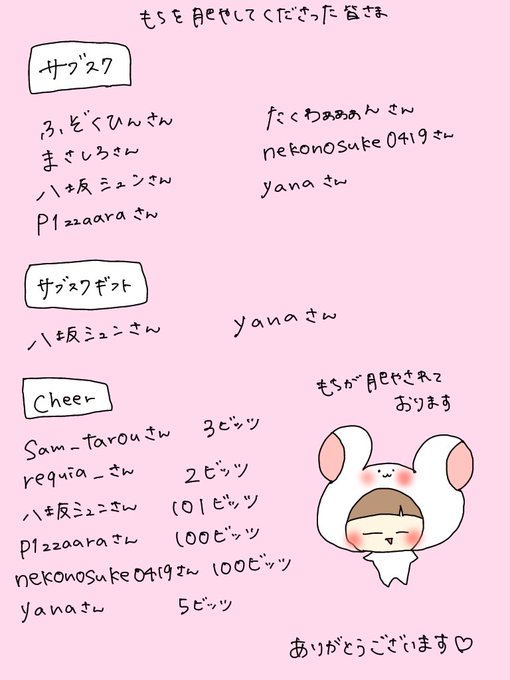 もちを肥やしてくださった皆さま
サブスク
ふぞくひんさん
まさしろさん
八坂ミュンさん
P1zzaaraさん
たくわぁぁぁんさん
nekonosuke0419さん
yanaさん
サブスクギフト
八坂ミュンさん
yanaさん
Cheer
Sam_tarouさん 3ビッツ
requia_さん 2ビッツ
八坂ミュンさん 101ビッツ
P1zzaaraさん 100ビッツ
nekonosuke0419さん 100ビッツ
yanaさん 5ビッツ
もちが肥やされて
おります
ありがとうございます♡